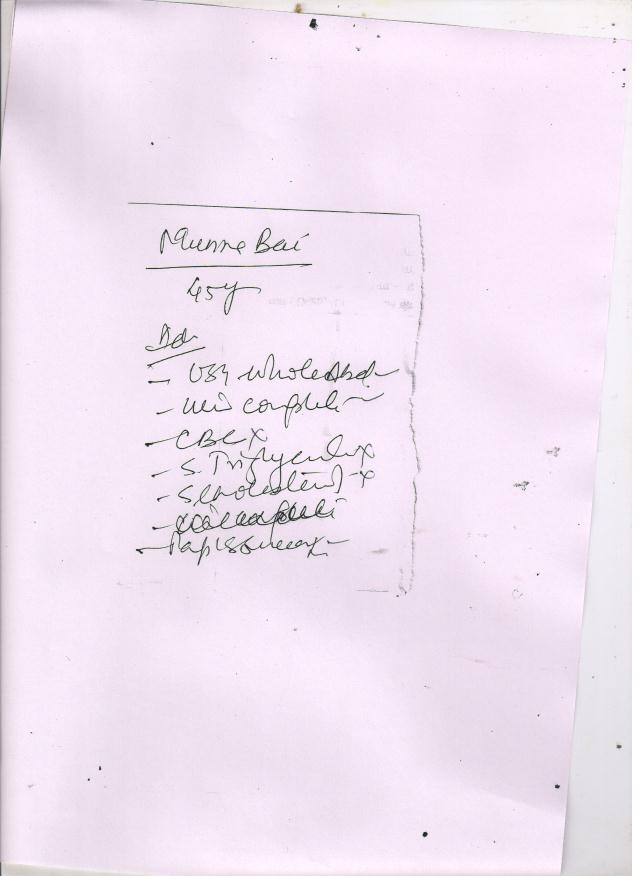 Munna Bai
45y
Adv
- USG whole Abd
- Urine complete
- CBC X
- S. Triglyceride X
- S. Cholesterol X
- Pap smear X